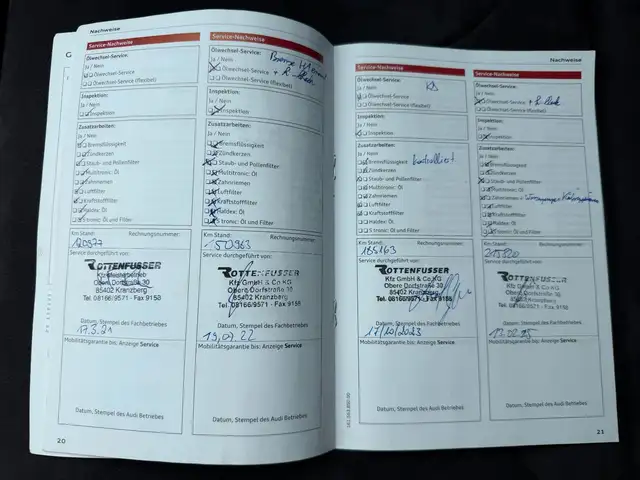 Nachweise
Service-Nachweise
Ölwechsel-Service:
Ja / Nein
Ölwechsel-Service
Ölwechsel-Service (flexibel)
Inspektion:
Ja / Nein
Inspektion
Zusatzarbeiten:
Ja / Nein
Bremsflüssigkeit
Zündkerzen
Staub- und Pollenfilter
Multitronic: Öl
Zahnriemen
Luftfilter
Kraftstofffilter
Haldex: Öl
S tronic: Öl und Filter
Km Stand:
Rechnungsnummer:
120577
Service durchgeführt von:
ROTTENFUSSER
Kfz-Meisterbetrieb
Obere Dorfstraße 30
85402 Kranzberg
Tel. 08166/9571 - Fax 9158
Datum, Stempel des Fachbetriebes
17.3.21
Mobilitätsgarantie bis: Anzeige Service
Datum, Stempel des Audi Betriebes
20
Service-Nachweise
Ölwechsel-Service:
Ja / Nein
Ölwechsel-Service
Ölwechsel-Service (flexibel)
Inspektion:
Ja / Nein
Inspektion
Zusatzarbeiten:
Ja / Nein
Bremsflüssigkeit
Zündkerzen
Staub- und Pollenfilter
Multitronic: Öl
Zahnriemen
Luftfilter
Kraftstofffilter
Haldex: Öl
S tronic: Öl und Filter
Km Stand:
Rechnungsnummer:
150963
Service durchgeführt von:
ROTTENFUSSER
Kfz GmbH & Co KG
Obere Dorfstraße 30
85402 Kranzberg
Tel. 08166/9571 - Fax 9158
Datum, Stempel des Fachbetriebes
19.07.22
Mobilitätsgarantie bis: Anzeige Service
Datum, Stempel des Audi Betriebes
Nachweise
Service-Nachweise
Ölwechsel-Service:
Ja / Nein
Ölwechsel-Service
Ölwechsel-Service (flexibel)
Inspektion:
Ja / Nein
Inspektion
Zusatzarbeiten:
Ja / Nein
Bremsflüssigkeit kontrolliert
Zündkerzen
Staub- und Pollenfilter
Multitronic: Öl
Zahnriemen
Luftfilter
Kraftstofffilter
Haldex: Öl
S tronic: Öl und Filter
Km Stand:
Rechnungsnummer:
185163
Service durchgeführt von:
ROTTENFUSSER
Kfz GmbH & Co KG
Obere Dorfstraße 30
85402 Kranzberg
Tel. 08166/9571 - Fax 9158
Datum, Stempel des Fachbetriebes
17/10/2023
Mobilitätsgarantie bis: Anzeige Service
Datum, Stempel des Audi Betriebes
Service-Nachweise
Ölwechsel-Service:
Ja / Nein
Ölwechsel-Service
Ölwechsel-Service (flexibel)
Inspektion:
Ja / Nein
Inspektion
Zusatzarbeiten:
Ja / Nein
Bremsflüssigkeit
Zündkerzen
Staub- und Pollenfilter
Multitronic: Öl
Zahnriemen
Luftfilter
Kraftstofffilter
Haldex: Öl
S tronic: Öl und Filter
Km Stand:
Rechnungsnummer:
Service durchgeführt von:
ROTTENFUSSER
Kfz GmbH & Co KG
Obere Dorfstraße 30
85402 Kranzberg
Tel. 08166/9571 - Fax 9158
Datum, Stempel des Fachbetriebes
Mobilitätsgarantie bis: Anzeige Service
Datum, Stempel des Audi Betriebes
21